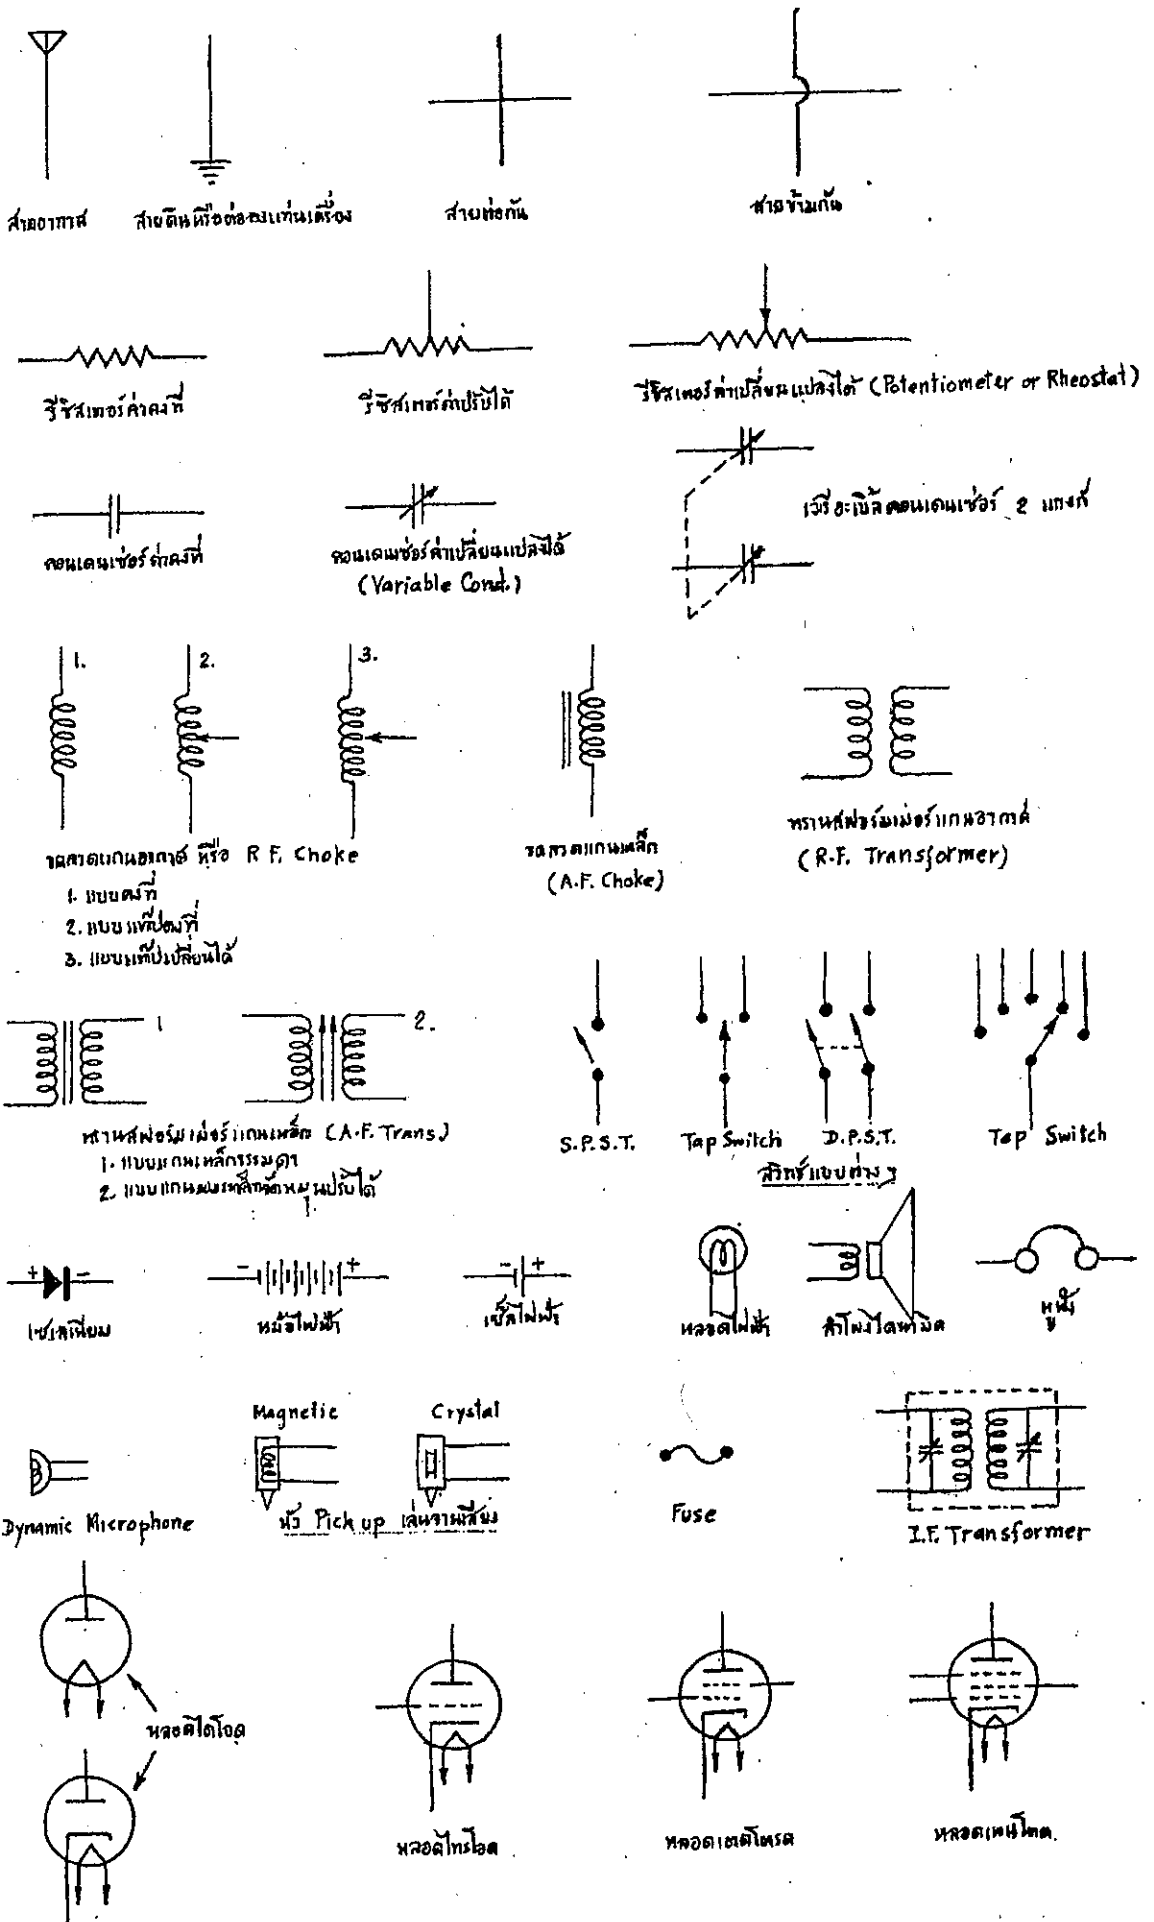 สายอากาศ
สายดินหรือต่อลงแท่นเครื่อง
สายต่อกัน
สายข้ามกัน
รีซิสเตอร์ค่าคงที่
รีซิสเตอร์ค่าปรับได้
รีซิสเตอร์ค่าเปลี่ยนแปลงได้ (Potentiometer or Rheostat)
คอนเดนเซ่อร์ค่าคงที่
คอนเดนเซ่อร์ค่าเปลี่ยนแปลงได้
(Variable Cond.)
เวรีอะเบิ้ลคอนเดนเซ่อร์ 2 แกงก์
1.
2.
3.
ขดลวดแกนอากาศ หรือ R.F. Choke
1. แบบคงที่
2. แบบแท๊ปคงที่
3. แบบแท๊ปเปลี่ยนได้
ขดลวดแกนเหล็ก
(A.F. Choke)
ทรานสฟอร์มเม่อร์แกนอากาศ
(R.F. Transformer)
1
2.
ทรานสฟอร์มเม่อร์แกนเหล็ก (A.F. Trans.)
1. แบบแกนเหล็กธรรมดา
2. แบบแกนผงเหล็กอัดหมุนปรับได้
S.P.S.T.
Tap Switch
D.P.S.T.
Tap Switch
สวิทช์แบบต่าง ๆ
+ -
เซเลเนียม
- +
หม้อไฟฟ้า
- +
เซ็ลไฟฟ้า
หลอดไฟฟ้า
ลำโพงไดนามิค
หูฟัง
Dynamic Microphone
Magnetic
Crystal
หัว Pick up เล่นจานเสียง
Fuse
I.F. Transformer
หลอดไดโอด
หลอดไทรโอด
หลอดเตตโทรด
หลอดเพนโทด.